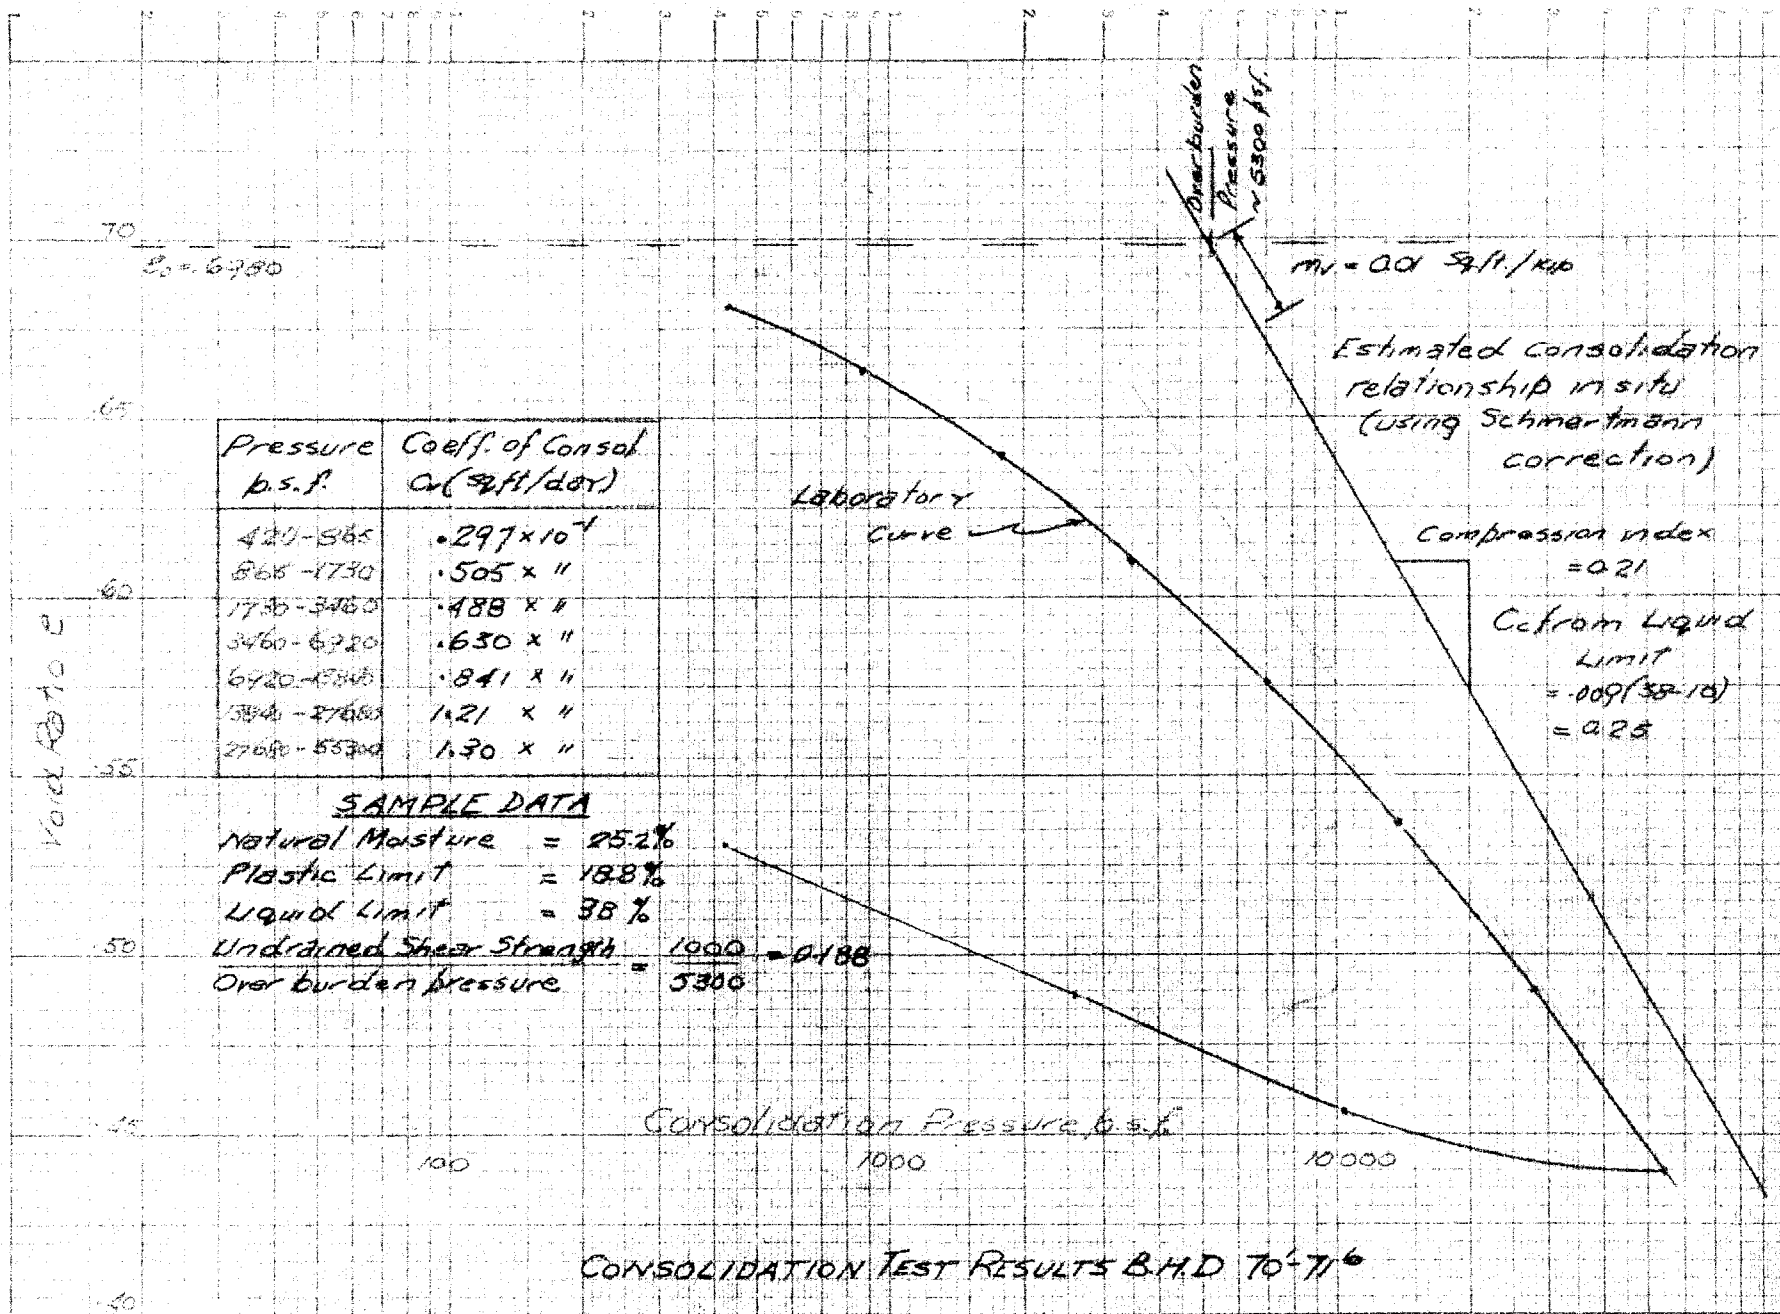 Overburden
Pressure
~ 5300 p.s.f.
.70
e₀ = .6980
mv = 0.01 Sq.ft./kip
Estimated Consolidation
relationship in situ
(using Schmertmann
correction)
.65
Pressure Coeff. of Consol
p.s.f. Cv (sq.ft/day)
420-865 .297 x 10⁻¹
865-1730 .505 x "
1730-3460 .488 x "
3460-6920 .630 x "
6920-13840 .841 x "
13840-27680 1.21 x "
27680-55300 1.30 x "
Laboratory
Curve
Compression index
= 0.21
Cc from Liquid
Limit
= .009(38-10)
= 0.25
.60
Void Ratio e
.55
SAMPLE DATA
Natural Moisture = 25.2%
Plastic Limit = 18.8%
Liquid Limit = 38%
Undrained Shear Strength = 1000 = 0.188
Over burden pressure 5300
.50
.45
Consolidation Pressure p.s.f.
100 1000 10000
CONSOLIDATION TEST RESULTS B.H.D 70'-71'6
.40